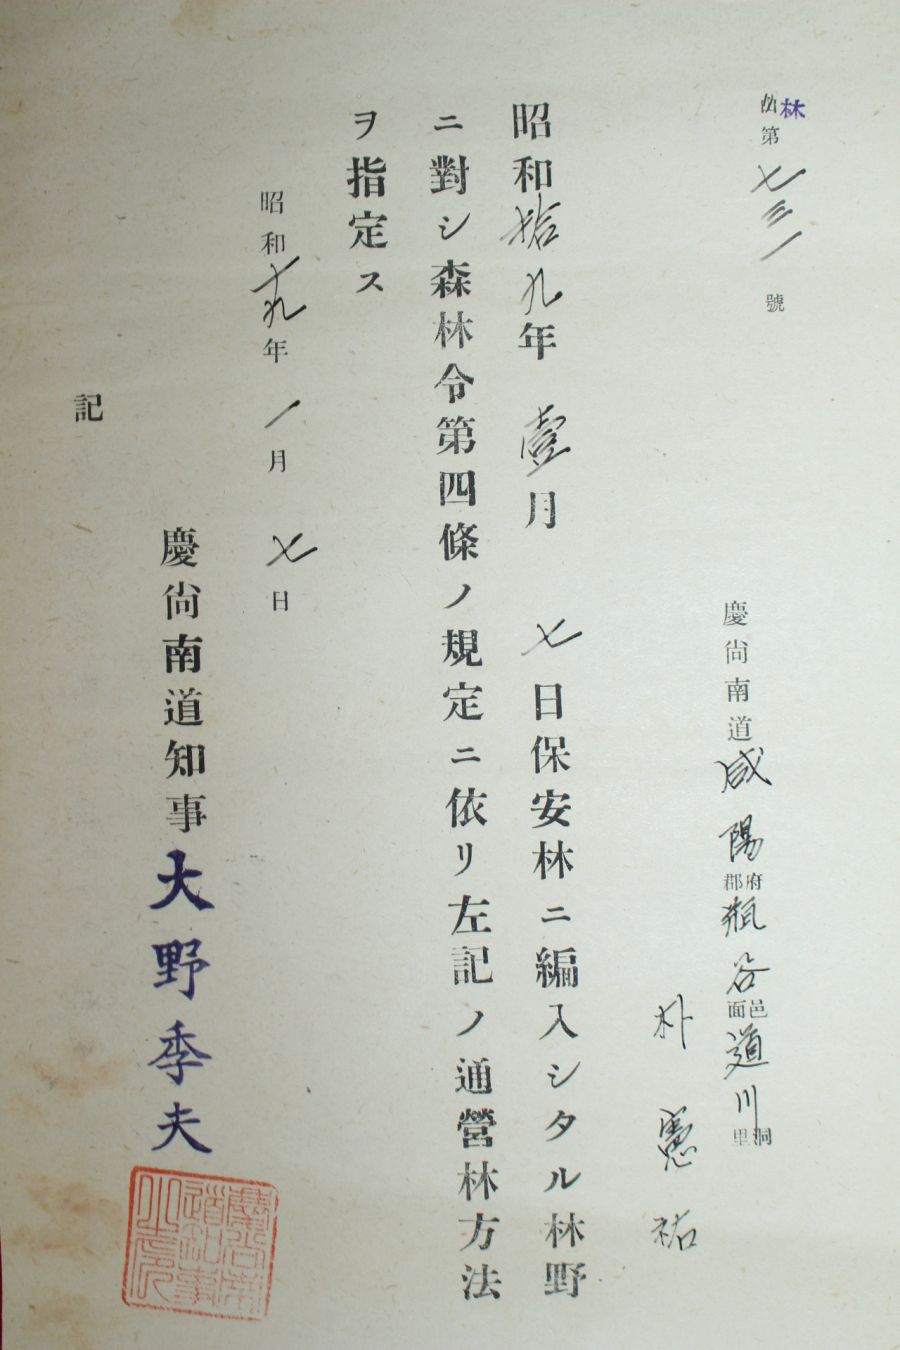 林第七三一號
慶尙南道咸陽府郡瓶谷邑面道川洞里
朴憲祐
昭和拾九年壹月七日保安林ニ編入シタル林野
ニ對シ森林令第四條ノ規定ニ依リ左記ノ通營林方法
ヲ指定ス
昭和十九年一月七日
慶尙南道知事大野季夫
慶尙南道知事之印
記